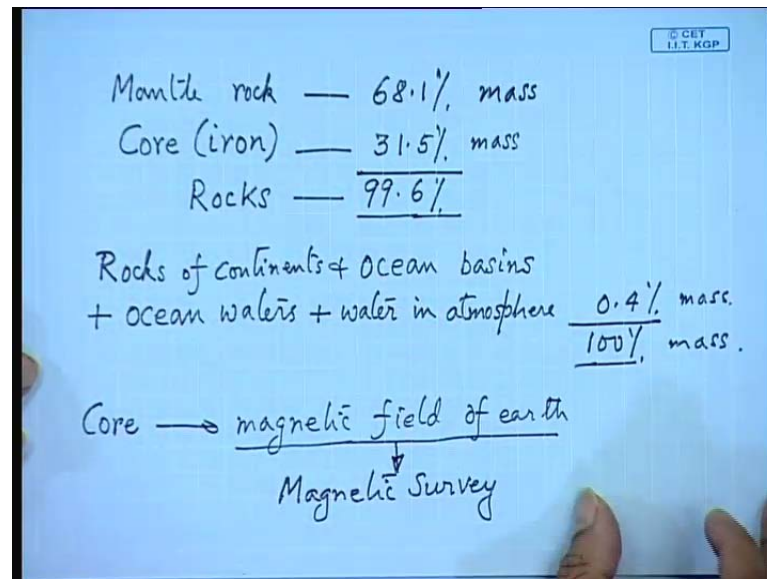 © CET
I.I.T. KGP
Mantle rock — 68.1% mass
Core (iron) — 31.5% mass
Rocks — 99.6%
Rocks of continents + ocean basins
+ ocean waters + water in atmosphere 0.4% mass.
100% mass.
Core → magnetic field of earth
Magnetic Survey